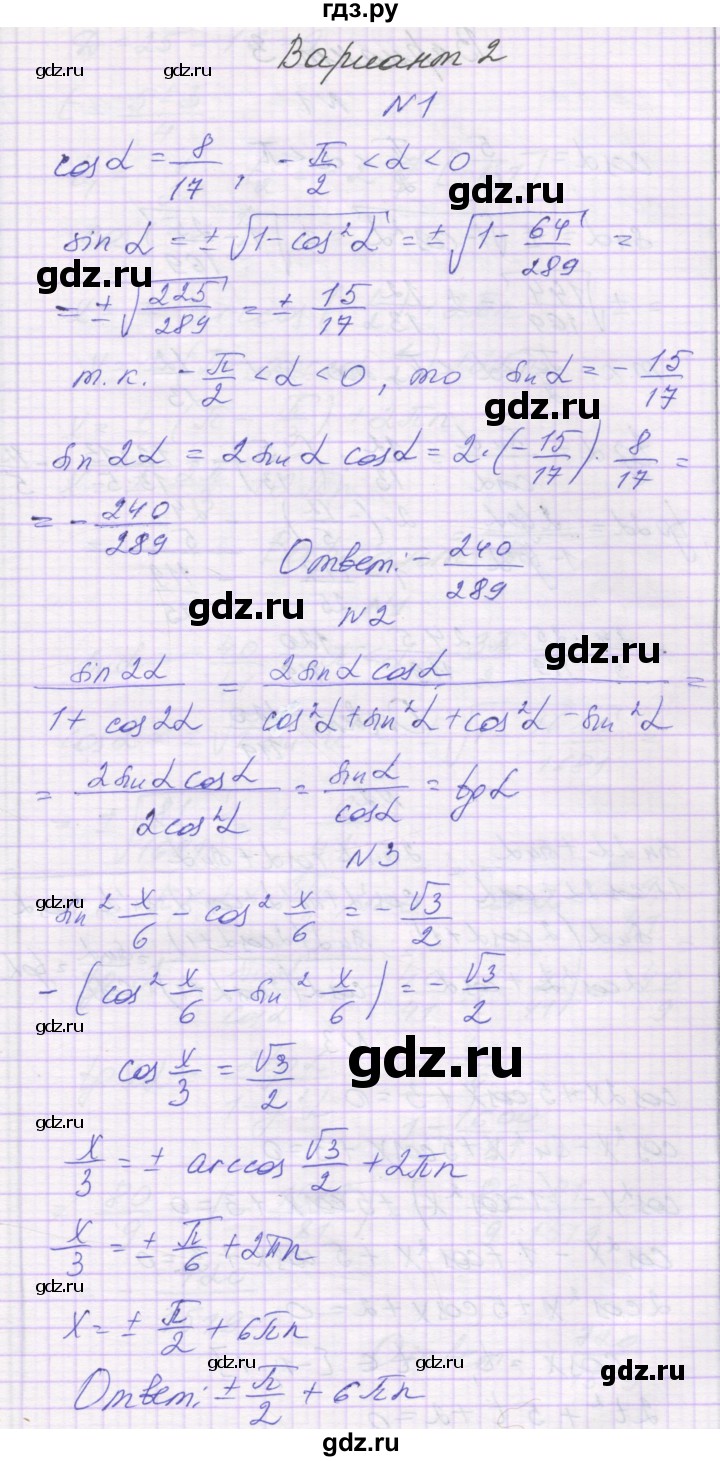 гдз.ру
Вариант 2
gdz.ru gdz.ru gdz.ru
N1
cos α = 8/17, -π/2 < α < 0
gdz.ru
sin α = ±√(1 - cos²α) = ±√(1 - 64/289) =
gdz.ru
= ±√(225/289) = ± 15/17
т.к. -π/2 < α < 0, то sin α = -15/17
gdz.ru
sin 2α = 2 sin α cos α = 2·(-15/17)·8/17 =
= -240/289
Ответ: -240/289
gdz.ru
N2
gdz.ru
sin 2α / (1 + cos 2α) = 2 sin α cos α / (cos²α + sin²α + cos²α - sin²α) =
= 2 sin α cos α / 2cos²α = sin α / cos α = tg α
N3
gdz.ru gdz.ru gdz.ru
sin² x/6 - cos² x/6 = -√3/2
-(cos² x/6 - sin² x/6) = -√3/2
gdz.ru
cos x/3 = √3/2
gdz.ru
x/3 = ± arccos √3/2 + 2πn
x/3 = ± π/6 + 2πn
gdz.ru gdz.ru
x = ± π/2 + 6πn
gdz.ru gdz.ru gdz.ru
Ответ: ± π/2 + 6πn
gdz.ru